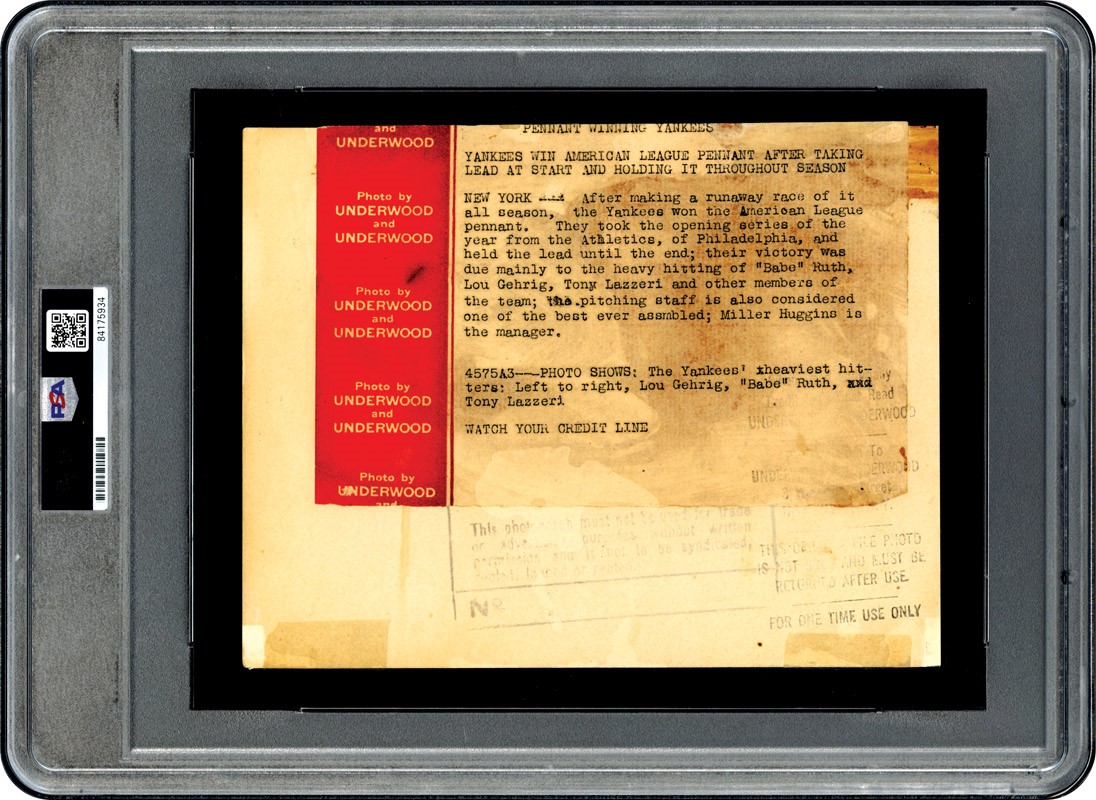 and
UNDERWOOD
Photo by
UNDERWOOD
and
UNDERWOOD
Photo by
UNDERWOOD
and
UNDERWOOD
Photo by
UNDERWOOD
and
UNDERWOOD
Photo by
UNDERWOOD
and
PENNANT WINNING YANKEES
YANKEES WIN AMERICAN LEAGUE PENNANT AFTER TAKING
LEAD AT START AND HOLDING IT THROUGHOUT SEASON
NEW YORK --- After making a runaway race of it
all season, the Yankees won the American League
pennant. They took the opening series of the
year from the Athletics, of Philadelphia, and
held the lead until the end; their victory was
due mainly to the heavy hitting of "Babe" Ruth,
Lou Gehrig, Tony Lazzeri and other members of
the team; the pitching staff is also considered
one of the best ever assmbled; Miller Huggins is
the manager.
4575A3---PHOTO SHOWS: The Yankees' xheaviest hit-
ters: Left to right, Lou Gehrig, "Babe" Ruth, and
Tony Lazzeri
WATCH YOUR CREDIT LINE
Read
To
This photograph must not be used for trade
or advertising purposes without written
permission, syndicated,
loaned or rented.
No
FILE PHOTO
IS NOT AND MUST BE
RETURNED AFTER USE
FOR ONE TIME USE ONLY
PSA
84175934